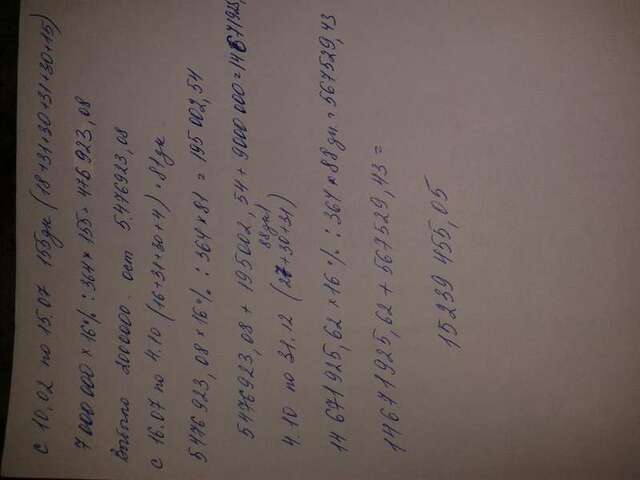 с 10.02 по 15.07 155дн (18+31+30+31+30+15)
7 000 000 × 16% : 364 × 155 = 476 923,08
Выбыло 2000000. ост 5.476923,08
с 16.07 по 4.10 (16+31+30+4) = 81дн.
5476 923,08 × 16% : 364 × 81 = 195 002,54
5476923,08 + 195002,54 + 9000 000 = 14671925,
88дн)
4.10 по 31.12 (27+30+31)
14 671925,62 × 16% : 364 × 88 дн. = 567529,43
14671925,62 + 567529,43 =
15239 455,05